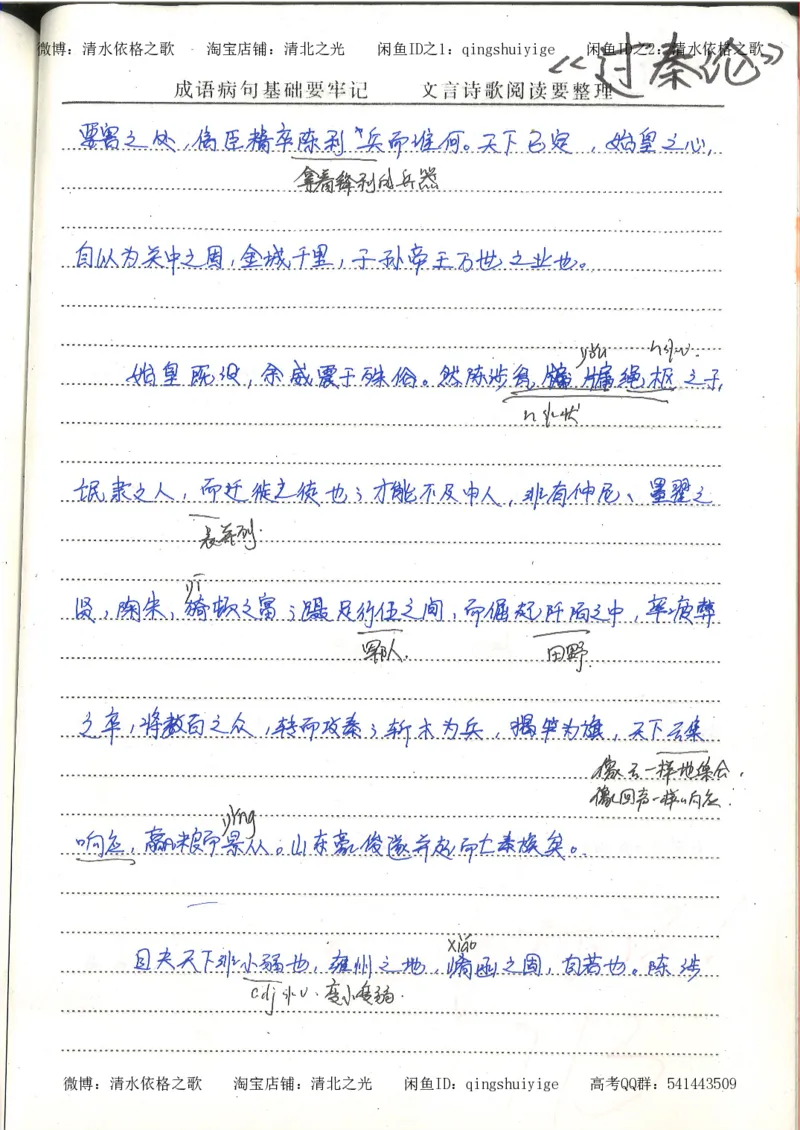 微博：清水依格之歌 淘宝店铺：清北之光 闲鱼ID之1：qingshuiyige 闲鱼ID之2：清水依格之歌
《过秦论》
成语病句基础要牢记 文言诗歌阅读要整理
要害之处，信臣精卒陈利兵而谁何。天下已定，始皇之心，
拿着锋利的兵器
自以为关中之固，金城千里，子孙帝王万世之业也。
yǒu n作v.
始皇既没，余威震于殊俗。然陈涉瓮牖绳枢之子，
n作状
氓隶之人，而迁徙之徒也；才能不及中人，非有仲尼、墨翟之
表并列
yī
贤，陶朱，猗顿之富；蹑足行伍之间，而倔起阡陌之中，率疲弊
军队 田野.
之卒，将数百之众，转而攻秦；斩木为兵，揭竿为旗，天下云集
像云一样地集合，
像回声一样响应.
yǐng
响应，赢粮而景从。山东豪俊遂并起而亡秦族矣。
xiáo
且夫天下非小弱也，雍州之地，崤函之固，自若也。陈涉
adj作v.变小变弱.
微博：清水依格之歌 淘宝店铺：清北之光 闲鱼ID：qingshuiyige 高考QQ群：541443509